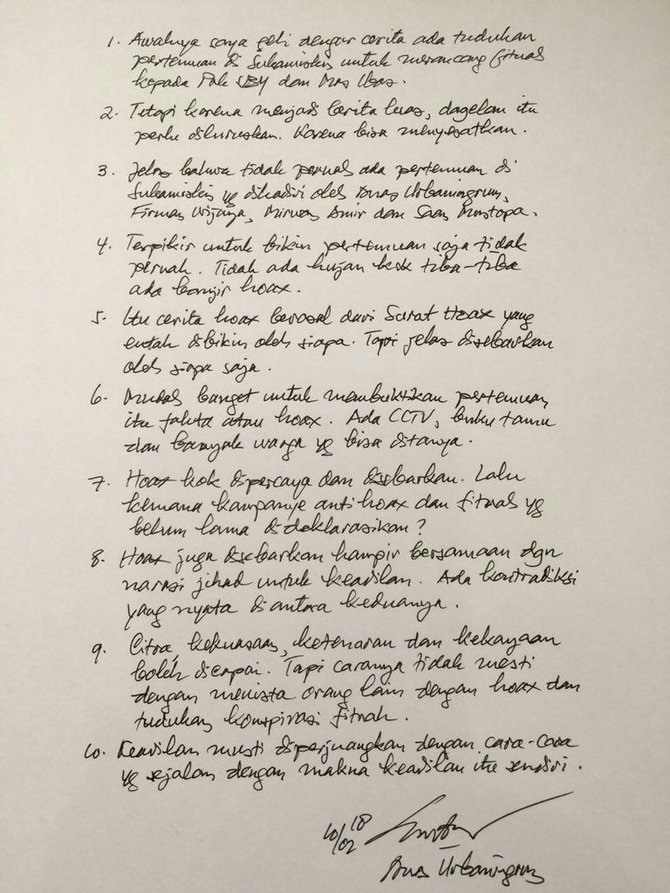 1. Awalnya saya geli dengar cerita ada tuduhan
pertemuan di Sukamiskin untuk merancang fitnah
kepada Pak SBY dan Mas Ibas.
2. Tetapi karena menjadi berita luas, dagelan itu
perlu diluruskan. Karena bisa menyesatkan.
3. Jelas bahwa tidak pernah ada pertemuan di
Sukamiskin yg dihadiri oleh Anas Urbaningrum,
Firman Wijaya, Mirwan Amir dan Saan Mustopa.
4. Terpikir untuk bikin pertemuan saja tidak
pernah. Tidak ada hujan kok tiba-tiba
ada banjir hoax.
5. Itu cerita hoax berasal dari Surat Hoax yang
entah dibikin oleh siapa. Tapi jelas disebarkan
oleh siapa saja.
6. Mudah banget untuk membuktikan pertemuan
itu fakta atau hoax. Ada CCTV, buku tamu
dan banyak warga yg bisa ditanya.
7. Hoax kok dipercaya dan disebarkan. Lalu
kemana kampanye anti hoax dan fitnah yg
belum lama dideklarasikan?
8. Hoax juga disebarkan hampir bersamaan dgn
narasi jihad untuk keadilan. Ada kontradiksi
yang nyata diantara keduanya.
9. Citra, kekuasaan, ketenaran dan kekayaan
boleh dicapai. Tapi caranya tidak mesti
dengan menista orang lain dengan hoax dan
tuduhan konspirasi fitnah.
10. Keadilan musti diperjuangkan dengan cara-cara
yg sejalan dengan makna keadilan itu sendiri.
10/02 18
Anas Urbaningrum